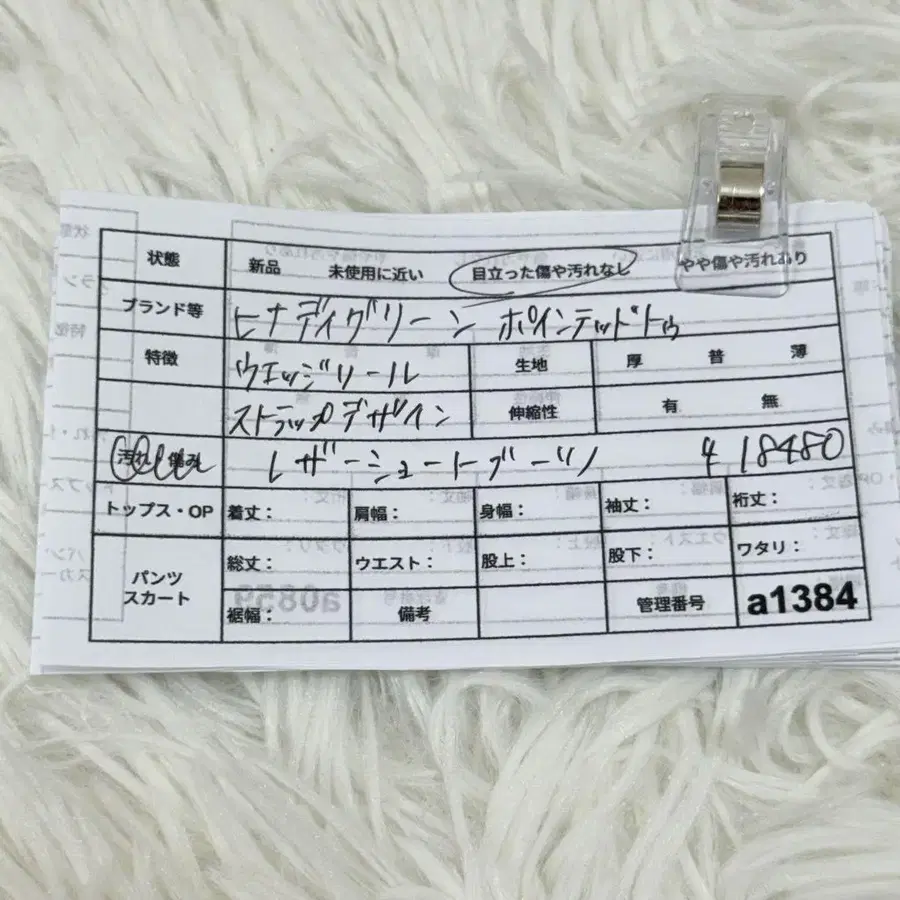 状態 新品 未使用に近い 目立った傷や汚れなし やや傷や汚れあり
ブランド等 ヒナデイグリーン ポインテッドトゥ
特徴 ウエッジソール 生地 厚 普 薄
ストラップデザイン 伸縮性 有 無
汚れ・傷み レザーショートブーツ 418480
トップス・OP 着丈： 肩幅： 身幅： 袖丈： 裄丈：
パンツ スカート 総丈： ウエスト： 股上： 股下： ワタリ：
裾幅： 備考 管理番号 a1384
a0859